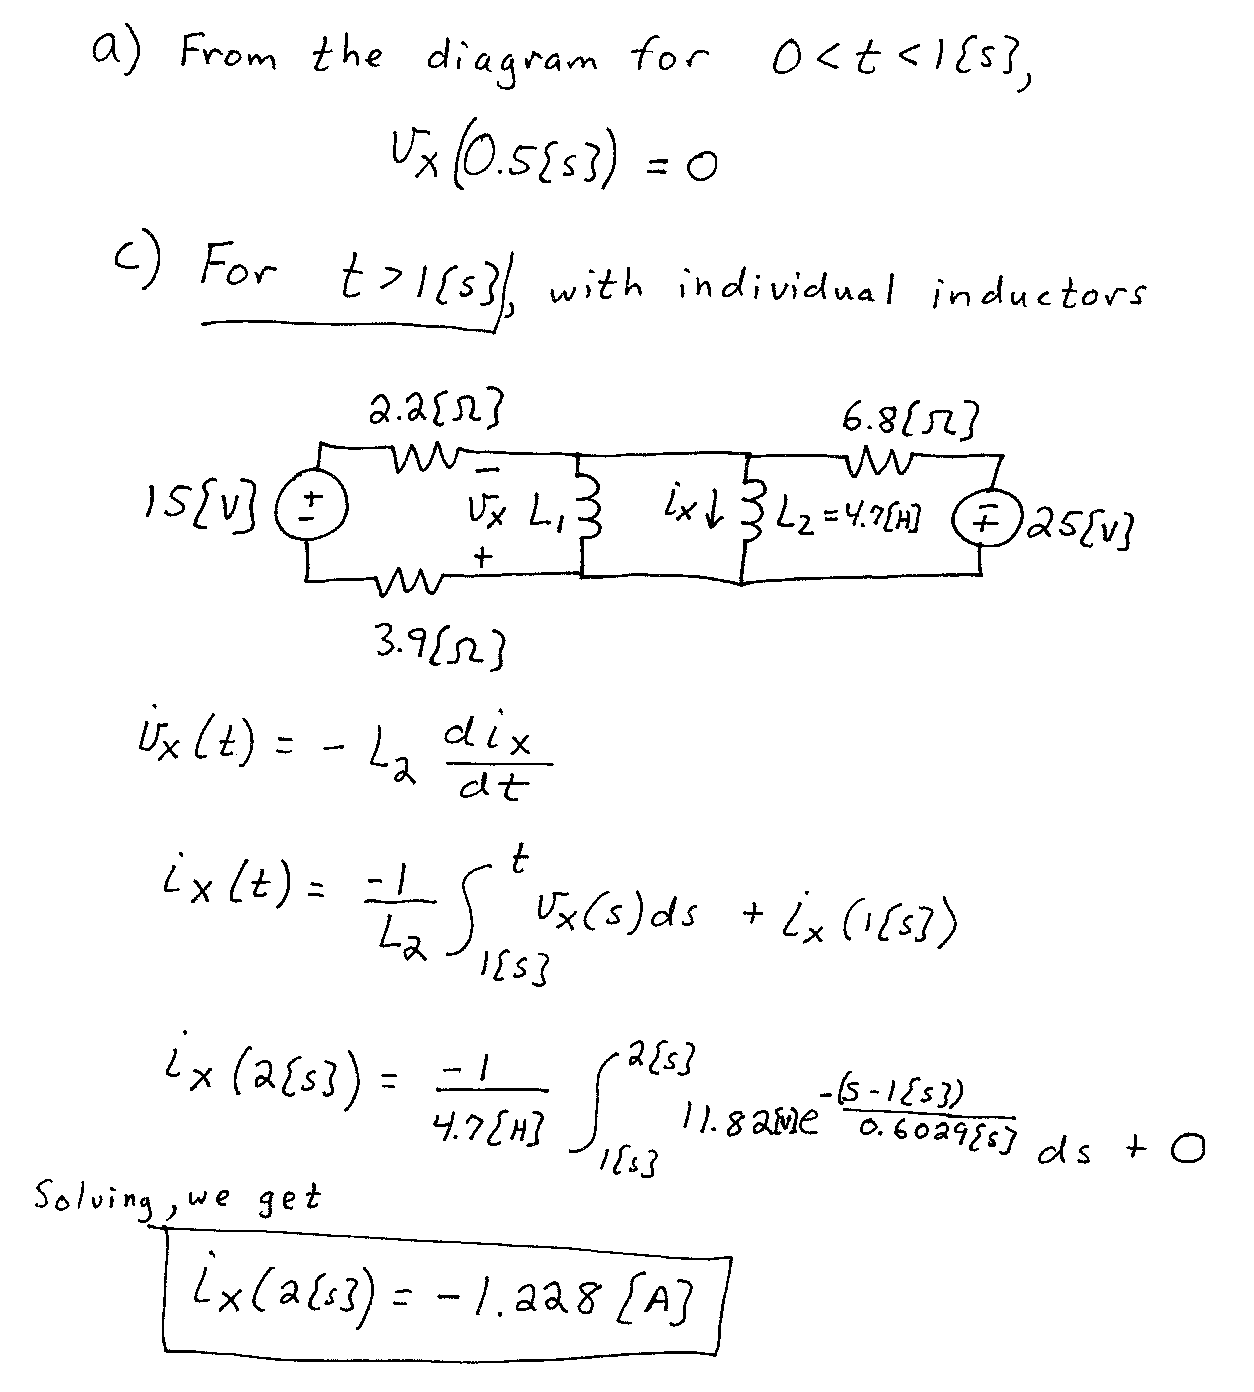 a) From the diagram for 0<t<1{s},
vx(0.5{s}) = 0
c) For t>1{s}, with individual inductors
2.2{Ω} 6.8{Ω}
15{V} + − − vx + L1 ix↓ L2=4.7{H} − + 25{V}
3.9{Ω}
vx(t) = - L2 dix/dt
ix(t) = -1/L2 ∫1{s}^t vx(s)ds + ix(1{s})
ix(2{s}) = -1/4.7{H} ∫1{s}^2{s} 11.82{V}e^-(s-1{s})/0.6029{s} ds + 0
Solving, we get
ix(2{s}) = -1.228{A}